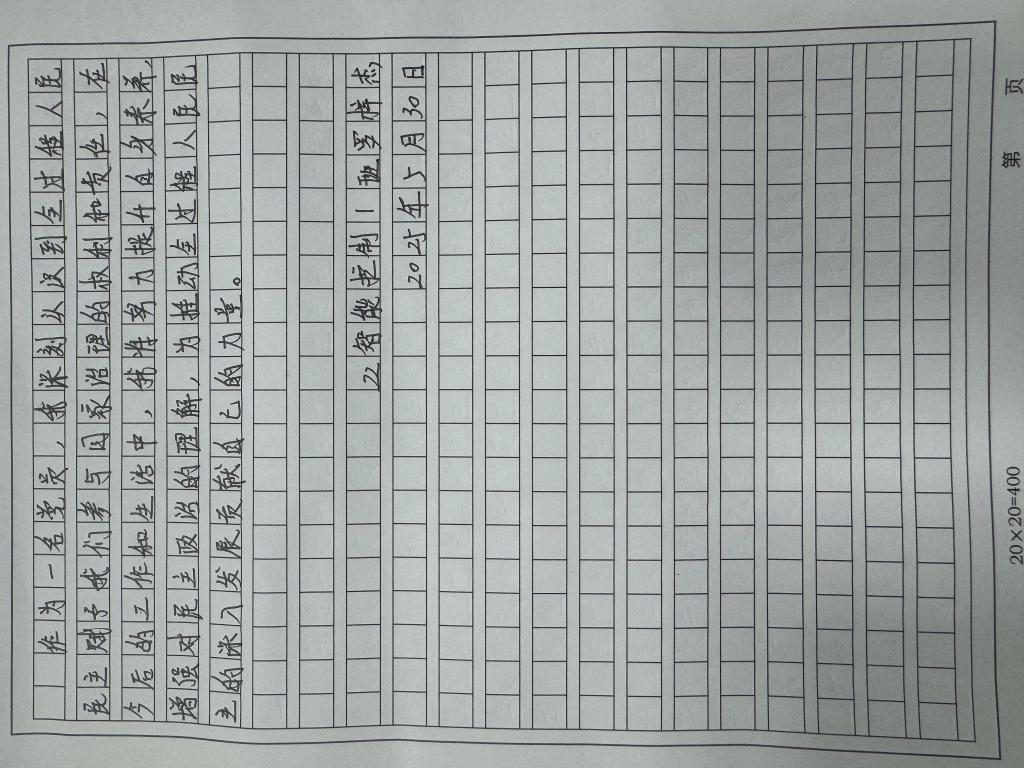 作为一名党员，我深刻认识到全过程人民
民主赋予我们参与国家治理的权利和责任，在
今后的工作和生活中，我将努力提升自身素养，
增强对民主政治的理解，为推动全过程人民民
主的深入发展贡献自己的力量。
22智能控制1班罗祥杰
2025年5月30日
20×20=400 第 页